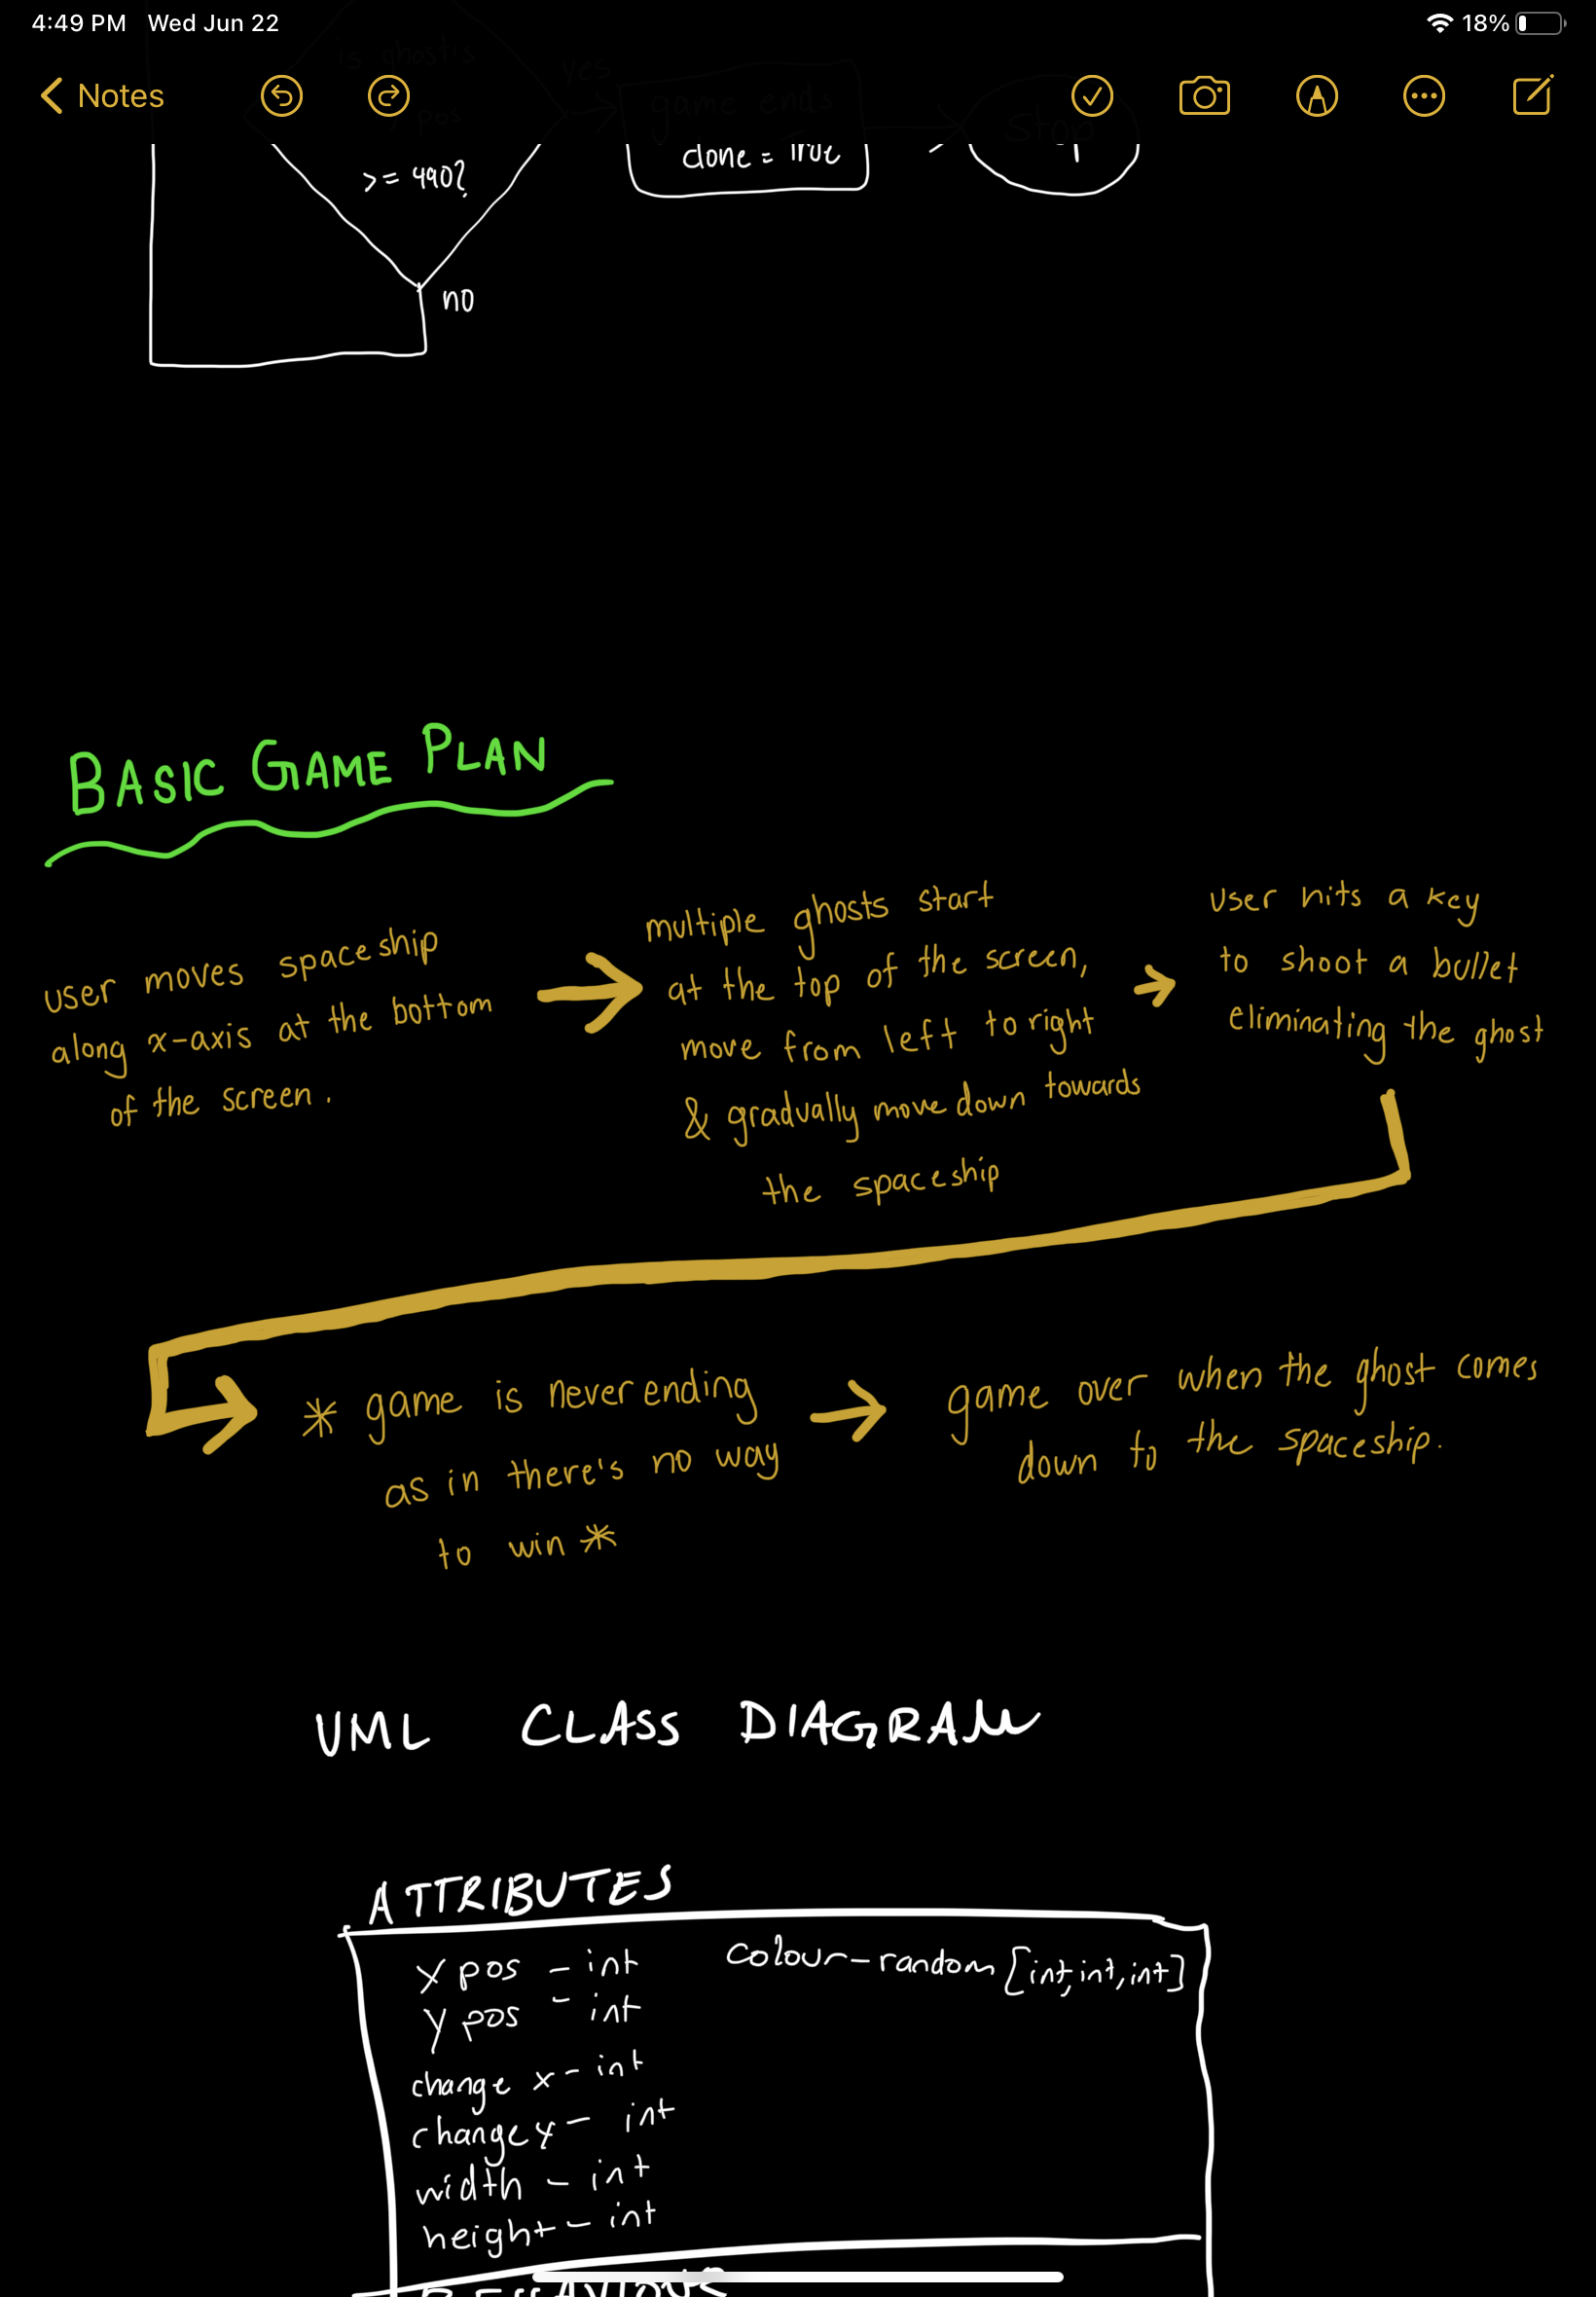 4:49 PM Wed Jun 22
18%
is ghost's
yes
Notes
pos
game ends
Stop
done = True
>= 490?
no
BASIC GAME PLAN
user moves spaceship
along x-axis at the bottom
of the screen.
multiple ghosts start
at the top of the screen,
move from left to right
& gradually move down towards
the spaceship
user hits a key
to shoot a bullet
eliminating the ghost
* game is never ending
as in there's no way
to win *
game over when the ghost comes
down to the spaceship.
UML CLASS DIAGRAM
ATTRIBUTES
X pos - int
y pos - int
change x - int
change y - int
width - int
height - int
Colour - random [int, int, int]